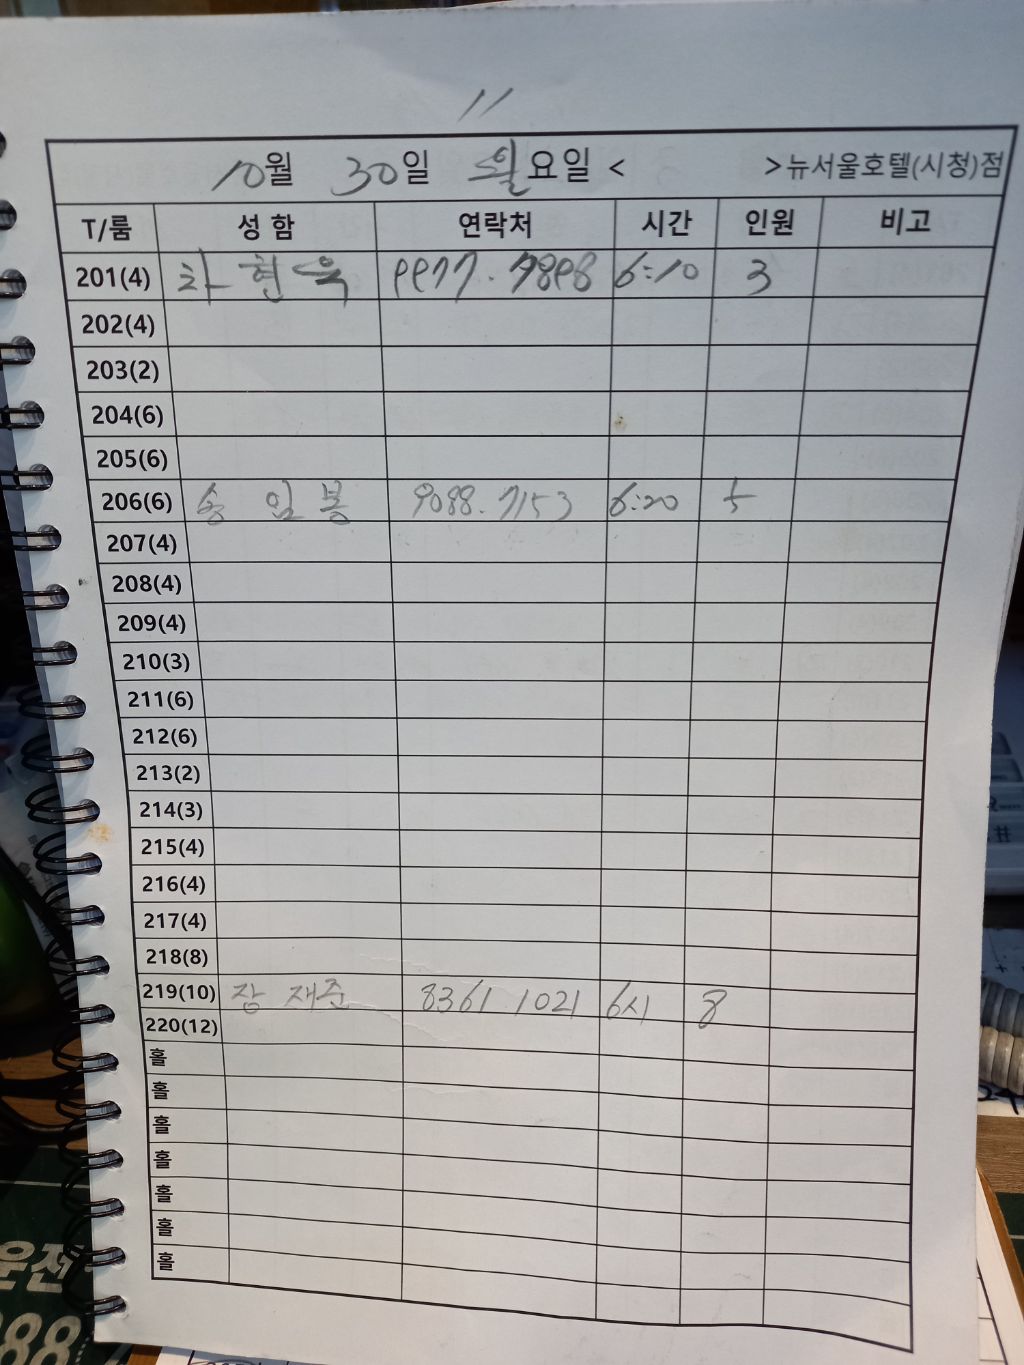 11
10월 30일 월요일 < >뉴서울호텔(시청)점
T/룸 성 함 연락처 시간 인원 비고
201(4) 차 현 욱 9977. 7898 6:10 3
202(4)
203(2)
204(6)
205(6)
206(6) 송 임 봉 9088. 7153 6:20 5
207(4)
208(4)
209(4)
210(3)
211(6)
212(6)
213(2)
214(3)
215(4)
216(4)
217(4)
218(8)
219(10) 장 재준 8361 1021 6시 8
220(12)
홀
홀
홀
홀
홀
홀
홀
운전